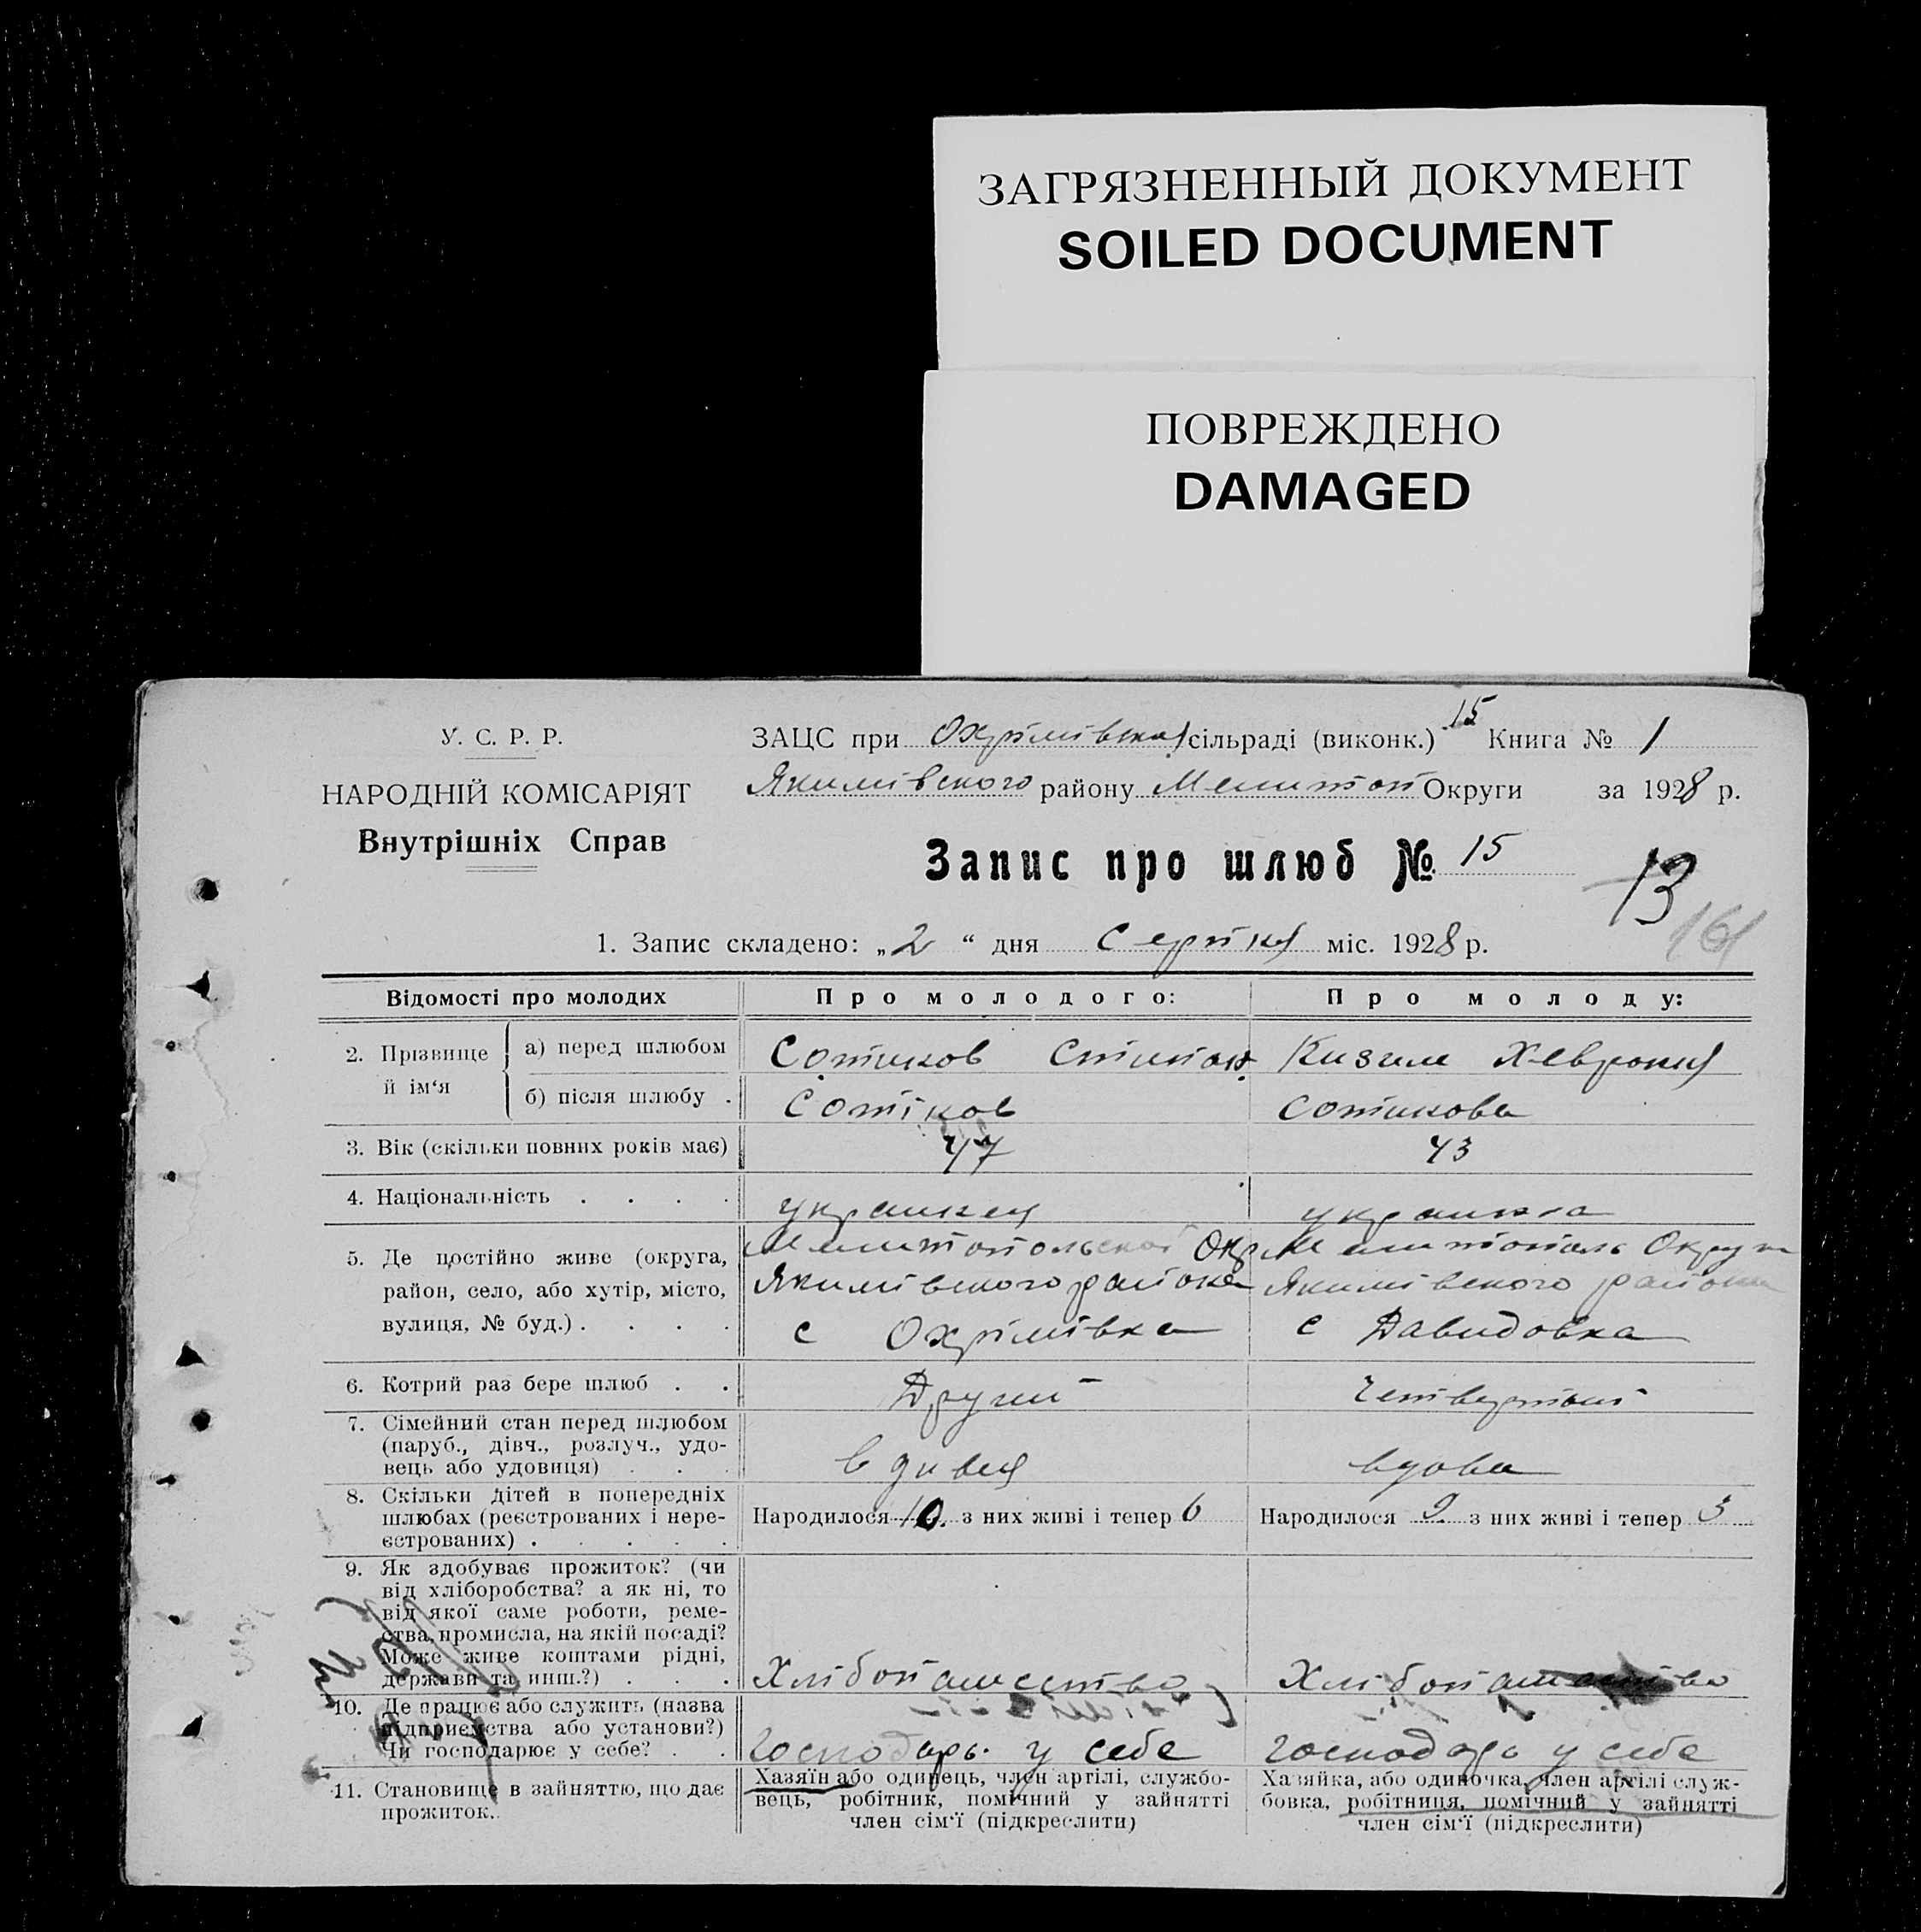 ЗАГРЯЗНЕННЫЙ ДОКУМЕНТ
SOILED DOCUMENT
ПОВРЕЖДЕНО
DAMAGED
У. С. Р. Р.
НАРОДНІЙ КОМІСАРІЯТ
Внутрішніх Справ
15
ЗАЦС при Охрімівській сільраді (виконк.) Книга № 1
Якимівского району Мелитоп Округи за 1928 р.
Запис про шлюб № 15
13
161
1. Запис складено: „2“ дня Серпня міс. 1928 р.
Відомості про молодих Про молодого: Про молоду:
2. Прізвище й ім‘я
а) перед шлюбом Сотиков Стипан Кизим Хевронія
б) після шлюбу . Сотіков Сотикова
3. Вік (скільки повних років має) 47 43
4. Національність . . . . украинец украинка
5. Де постійно живе (округа, Мелитопольской Окр Мелитополь Округи
район, село, або хутір, місто, Якимівского района Якимівского района
вулиця, № буд.) . . . . с Охрімівка с Давидовка
6. Котрий раз бере шлюб . . Другий Четвертый
7. Сімейний стан перед шлюбом
(паруб., дівч., розлуч., удо-
вець або удовиця) . . . вдивец вдова
8. Скільки дітей в попередніх
шлюбах (реєстрованих і нере- Народилося 10. з них живі і тепер 6 Народилося 9. з них живі і тепер 3
єстрованих) . . . . .
9. Як здобуває прожиток? (чи
від хліборобства? а як ні, то
від якої саме роботи, реме-
ства, промисла, на якій посаді?
Може живе коштами рідні,
держави та инш.?) . . . Хлібопашество Хлібопашество
10. Де працює або служить (назва
підприємства або установи?)
Чи господарює у себе? . . Господарь у себе господарь у себе
11. Становище в зайняттю, що дає
прожиток.
Хазяїн або одинець, член артілі, службо-
вець, робітник, помічний у зайнятті
член сім‘ї (підкреслити)
Хазяйка, або одиночка, член артілі служ-
бовка, робітниця, помічний у зайнятті
член сім‘ї (підкреслити)